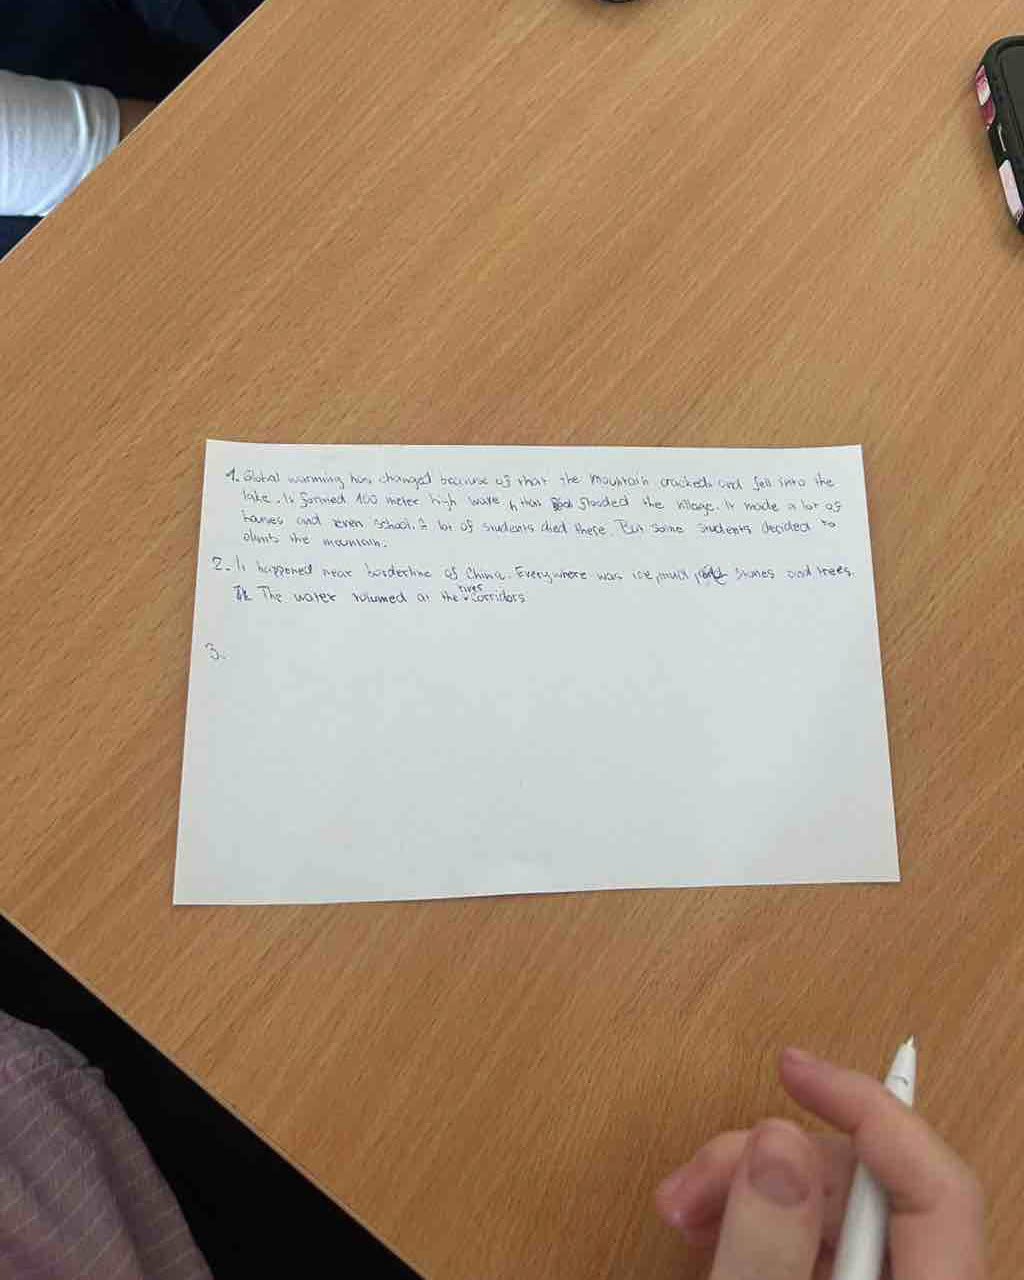 1. Global warming has changed because of that the mountain cracked and fell into the
lake. It formed 100 meter high wave, that flooded the village. It made a lot of
houses and even school. A lot of students died there. But some students decided to
the mountain.
2. It happened near borderline of China. Everywhere was ice, mud, stones and trees.
The water at the rives corridors
3.